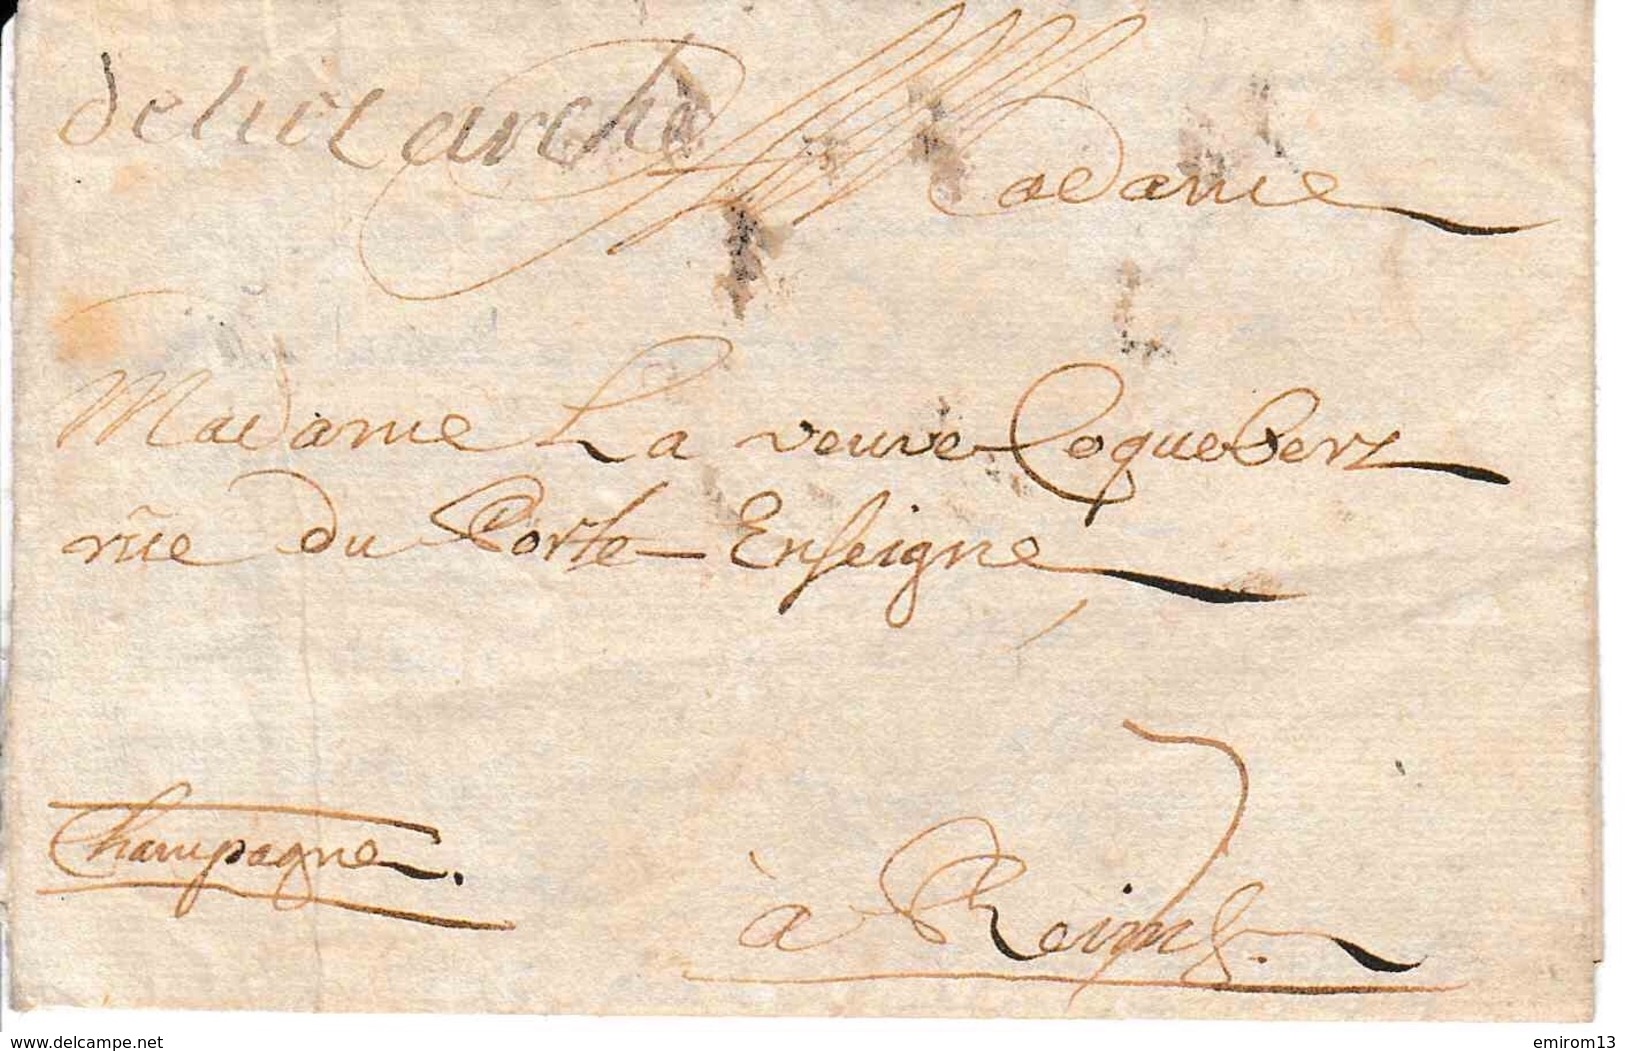 de lad marche
Madame
Madame La veuve Coquebert
rüe du Porte-Enseigne
Champagne.
à Reims.
www.delcampe.net
emirom13